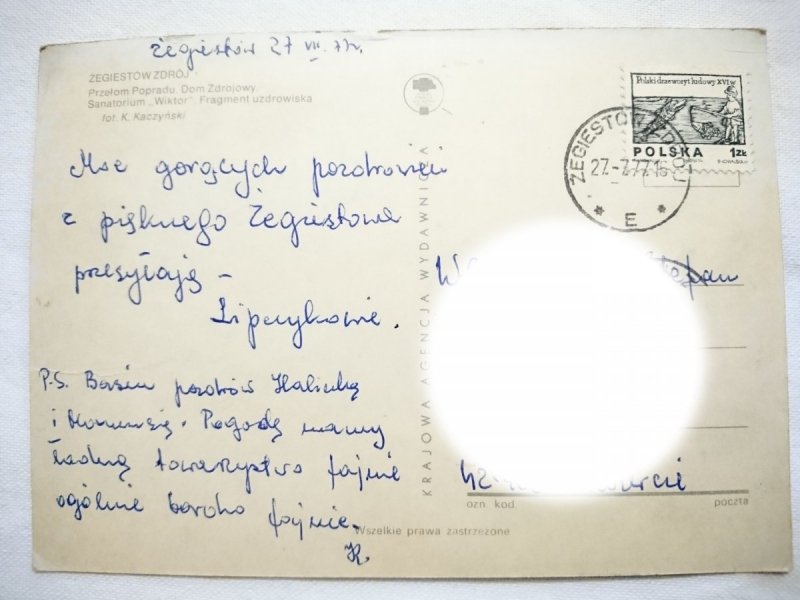 Żegiestów 27 VII. 77r.
ŻEGIESTÓW ZDRÓJ
Przełom Popradu. Dom Zdrojowy.
Sanatorium „Wiktor". Fragment uzdrowiska
fot. K. Kaczyński
Moc gorących pozdrowień
z pięknego Żegiestowa
przesyłają –
Lipczykowie.
P.S. Basiu pozdrów Halinkę
i Pogodę mamy
ładną towarzystwo fajnie
ogólnie bardzo fajnie.
K.
KRAJOWA AGENCJA WYDAWNICZA
Polski drzeworyt ludowy XVI w
POLSKA 1ZŁ
ŻEGIESTÓW ZDRÓJ
27.-7.77.16
* E *
ozn. kod. poczta
Wszelkie prawa zastrzeżone